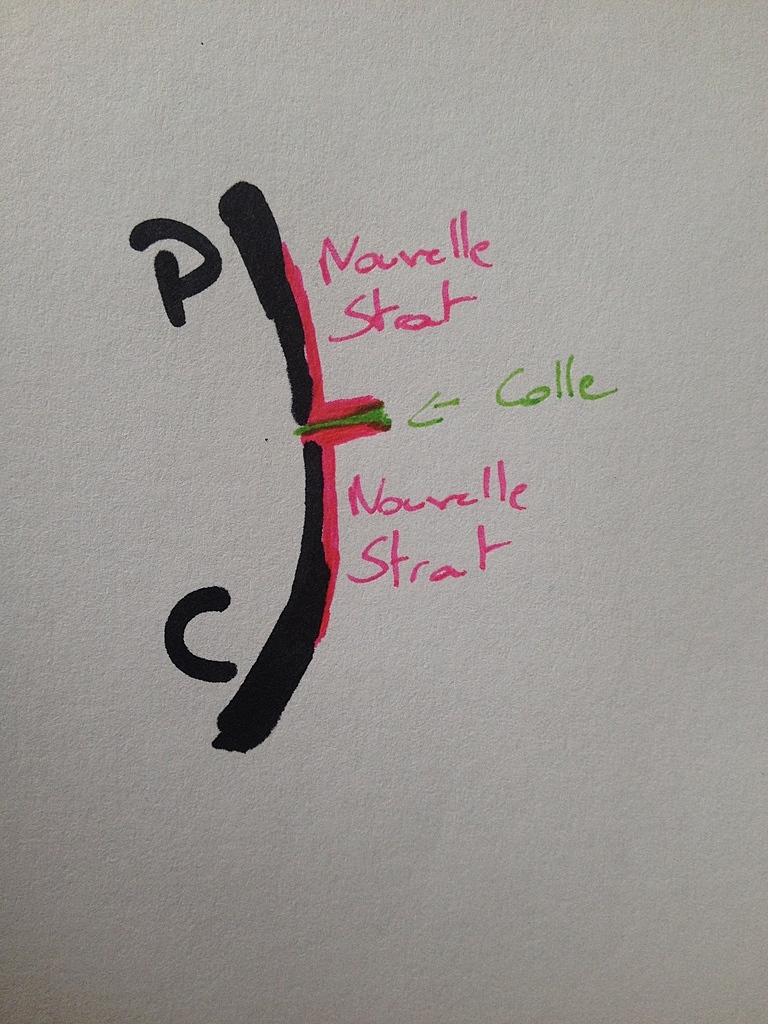 P
Nouvelle
Strat
← Colle
Nouvelle
Strat
C